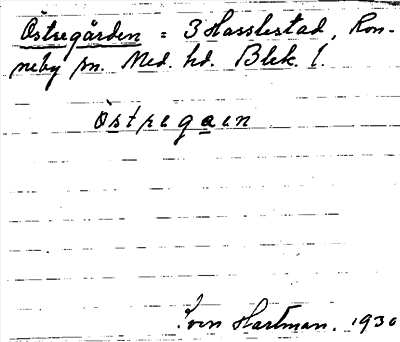 Östregården = 3 Hasslestad, Ron-
neby sn. Med. hd. Blek. l.
Östregaen
Sven Hartman. 1930